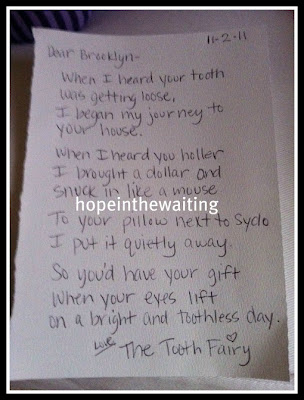 11-2-11
Dear Brooklyn-
When I heard your tooth
was getting loose,
I began my journey to
your house.
When I heard you holler
I brought a dollar and
snuck in like a mouse
hopeinthewaiting
To your pillow next to Syclo
I put it quietly away.
So you'd have your gift
when your eyes lift
on a bright and toothless day.
Love, The Tooth Fairy